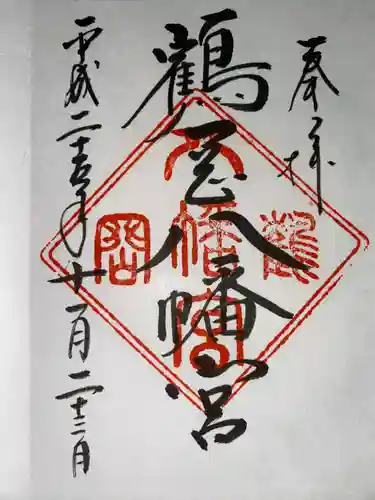 奉拝
鶴岡八幡宮
平成二十五年十一月二十二日
鶴
八幡宮
岡